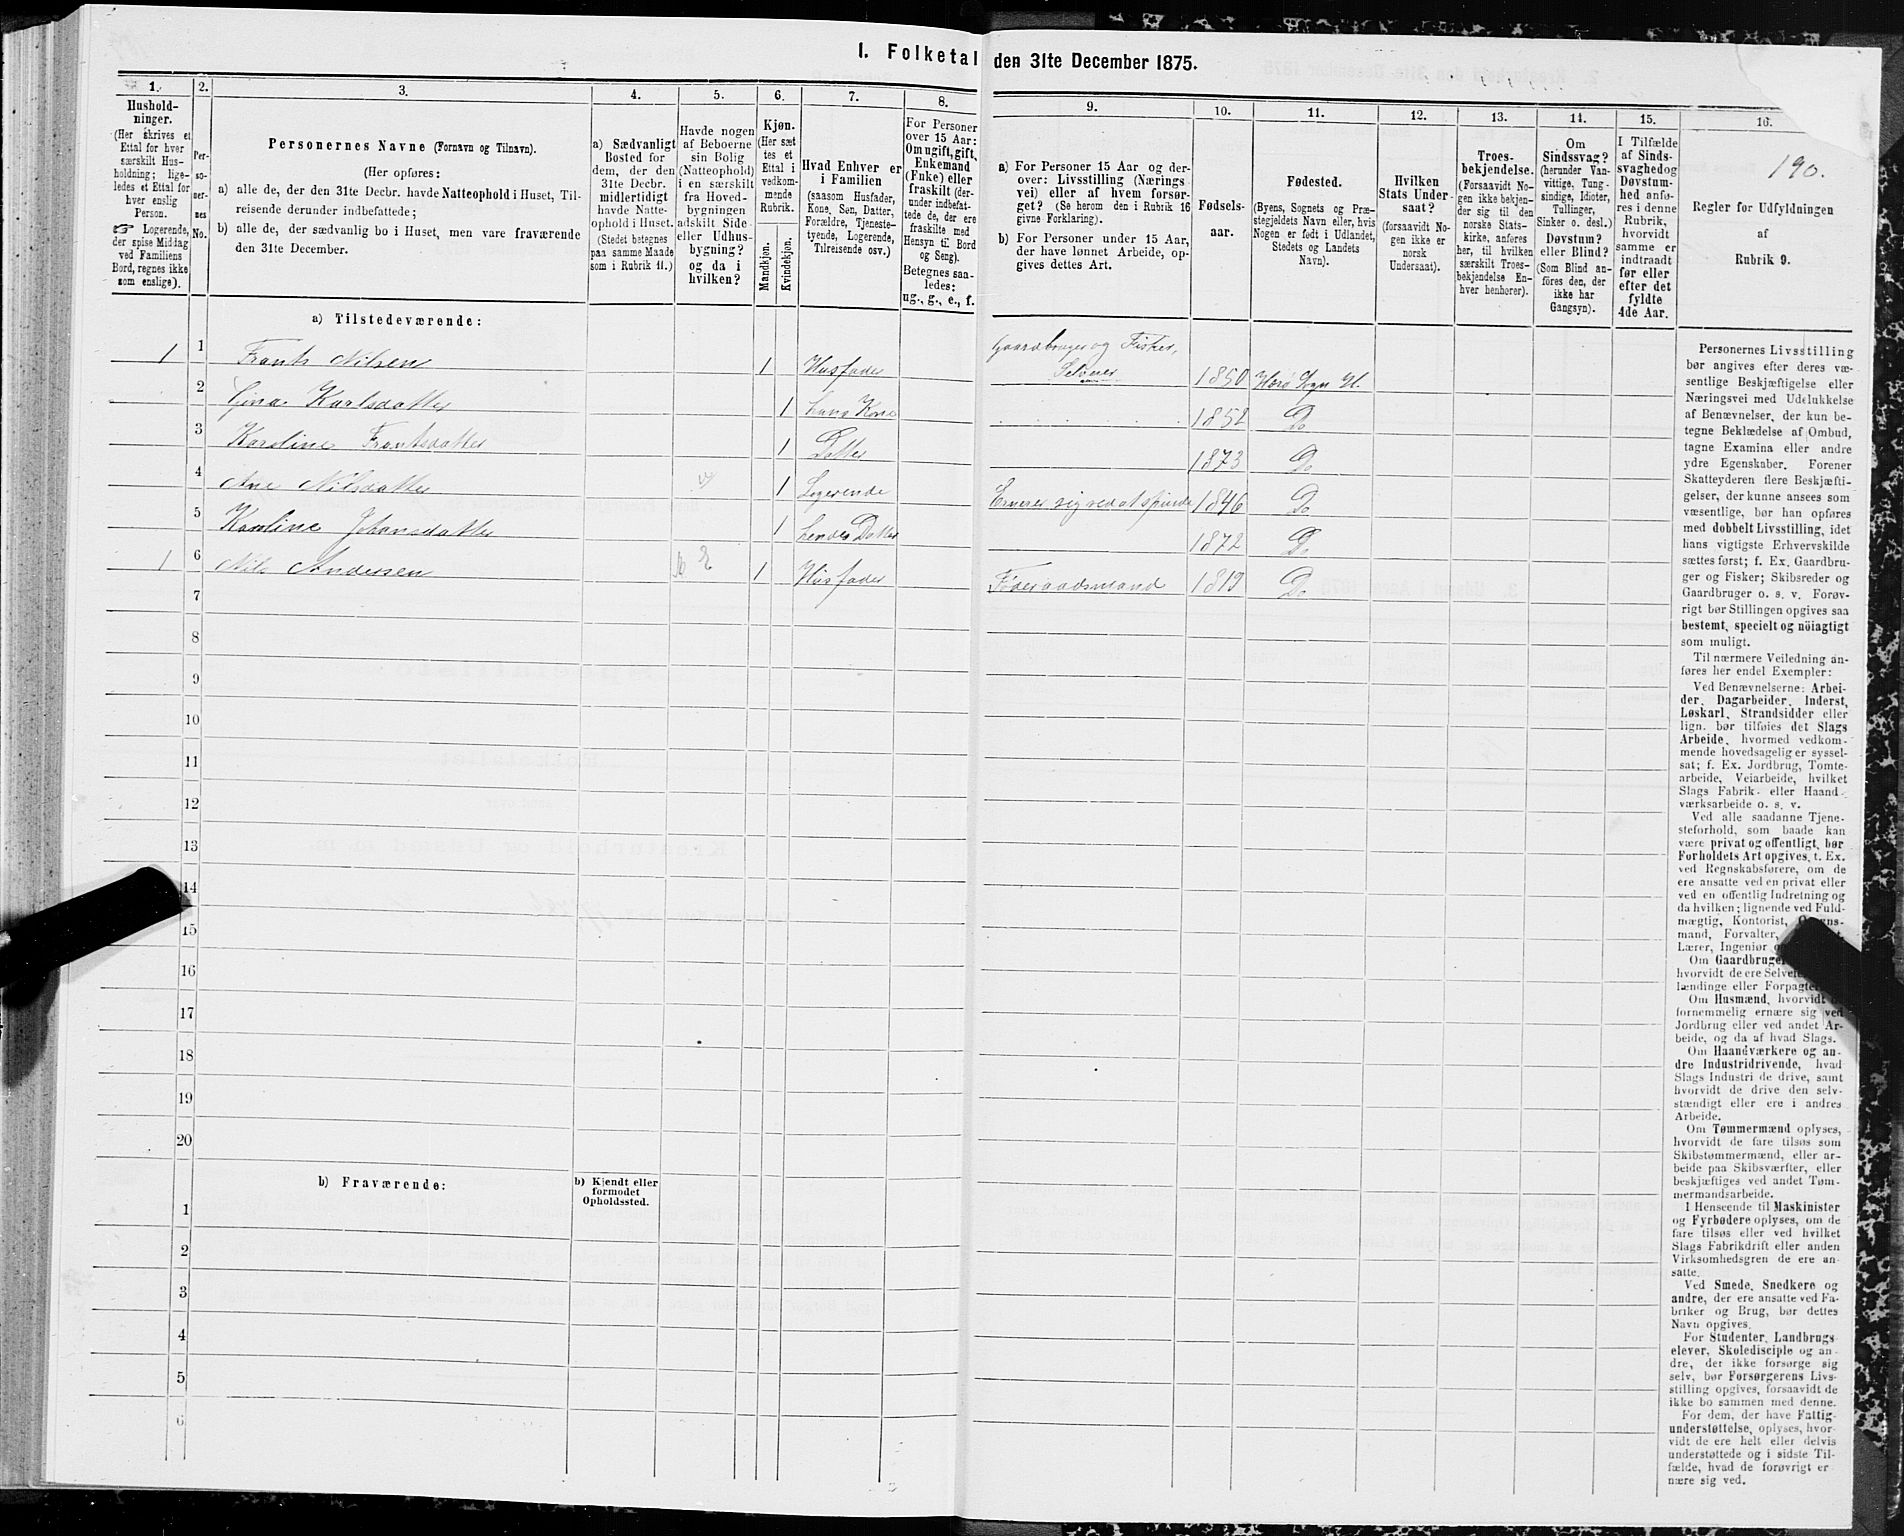 I. Folketal den 31te December 1875.
190.
1.
Hushold-
ninger.
(Her skrives et
Ettal for hver
særskilt Hus-
holdning; lige-
ledes et Ettal for
hver enslig
Person.
Logerende,
der spise Middag
ved Familiens
Bord, regnes ikke
som enslige).
2.
Per-
so-
ner-
nes
No.
3.
Personernes Navne (Fornavn og Tilnavn).
(Her opføres:
a) alle de, der den 31te Decbr. havde Natteophold i Huset, Til-
reisende derunder indbefattede;
b) alle de, der sædvanlig bo i Huset, men vare fraværende
den 31te December.
4.
a) Sædvanligt
Bosted for
dem, der den
31te Decbr.
midlertidigt
havde Natte-
ophold i Huset.
(Stedet betegnes
paa samme Maade
som i Rubrik 11.)
5.
Havde nogen
af Beboerne
sin Bolig
(Natteophold)
i en særskilt
fra Hoved-
bygningen
adskilt Side-
eller Udhus-
bygning?
og da i
hvilken?
6.
Kjøn.
(Her sæt
tes et
Ettal i
vedkom-
mende
Rubrik.
Mandkjøn.
Kvindekjøn.
7.
Hvad Enhver er
i Familien
(saasom Husfader,
Kone, Søn, Datter,
Forældre, Tjeneste-
tyende, Logerende,
Tilreisende osv.)
8.
For Personer
over 15 Aar:
Om ugift, gift,
Enkemand
(Enke) eller
fraskilt (der-
under indbefat-
tede de, der ere
fraskilte med
Hensyn til Bord
og Seng).
Betegnes saa-
ledes:
ug., g., e., f.
9.
a) For Personer 15 Aar og der-
over: Livsstilling (Nærings
vei) eller af hvem forsør-
get? (Se herom den i Rubrik 16
givne Forklaring).
b) For Personer under 15 Aar,
der have lønnet Arbeide, op-
gives dettes Art.
10.
Fødsels-
aar.
11.
Fødested.
(Byens, Sognets og Præ-
stegjeldets Navn eller, hvis
Nogen er født i Udlandet,
Stedets og Landets
Navn).
12.
Hvilken
Stats Under-
saat?
(forsaavidt No-
gen ikke er
norsk
Undersaat).
13.
Troes-
bekjendelse.
(Forsaavidt No-
gen ikke bekjen-
der sig til den
norske Stats-
kirke, anføres
her, til hvilken
særskilt Troes-
bekjendelse En-
hver henhører).
14.
Om
Sindssvag?
(herunder Van-
vittige, Tung-
sindige, Idioter,
Tullinger,
Sinker o. desl.)
Døvstum?
eller Blind?
(Som Blind an-
føres den, der
ikke har
Gangsyn).
15.
I Tilfælde
af Sinds-
svaghed og
Døvstum-
hed anfø-
res i denne
Rubrik,
hvorvidt
samme er
indtraadt
før eller
efter det
fyldte
4de Aar.
16.
Regler for Udfyldningen
af
Rubrik 9.
a) Tilstedeværende:
1 1 Frants Nilsen 1 Husfader Gaardbruger og Fisker, Selveier 1850 Herø Sogn H.
2 Gina Karlsdatter 1 hans Kone 1852 Do
3 Karoline Frantsdatter 1 Datter 1873 Do
4 Ane Nilsdatter 1 Logerende Ernærer sig ved at spinde 1846 Do
5 Karoline Johansdatter 1 hendes Datter 1872 Do
1 6 Nils Andersen 1 Husfader Føderaadsmand 1819 Do
7
8
9
10
11
12
13
14
15
16
17
18
19
20
b) Fraværende:
b) Kjendt eller
formodet
Opholdssted.
1
2
3
4
5
6
Personernes Livsstilling
bør angives efter deres væ-
sentlige Beskjæftigelse eller
Næringsvei med Udelukkelse
af Benævnelser, der kun be-
tegne Beklædelse af Ombud,
tagne Examina eller andre
ydre Egenskaber. Forener
Skatteyderen flere Beskjæfti-
gelser, der kunne ansees som
væsentlige, bør han opføres
med dobbelt Livsstilling, idet
hans vigtigste Erhvervskilde
sættes først; f. Ex. Gaardbru-
ger og Fisker; Skibsreder og
Gaardbruger o. s. v. Forøv-
rigt bør Stillingen opgives saa
bestemt, specielt og nöiagtigt
som muligt.
Til nærmere Veiledning an-
føres her endel Exempler:
Ved Benævnelserne: Arbei-
der, Dagarbeider, Inderst,
Løskarl, Strandsidder eller
lign. bør tilføies det Slags
Arbeide, hvormed vedkom-
mende hovedsagelig er syssel-
sat; f. Ex. Jordbrug, Tomte-
arbeide, Veiarbeide, hvilket
Slags Fabrik- eller Haand-
værksarbeide o. s. v.
Ved alle saadanne Tjene-
steforhold, som baade kan
være privat og offentligt, bør
Forholdets Art opgives, t. Ex.
ved Regnskabsførere, om de
ere ansatte ved en privat eller
ved en offentlig Indretning og
da hvilken; lignende ved Fuld-
mægtig, Kontorist,
mand, Forvalter,
Lærer, Ingeniør
Om Gaardbruger
hvorvidt de ere
lændinge eller
Om Husmænd, hvorvidt
fornemmelig ernære sig ved
Jordbrug eller ved andet Ar-
beide, og da af hvad Slags.
Om Haandværkere og an-
dre Industridrivende, hvad
Slags Industri de drive, samt
hvorvidt de drive den selv-
stændigt eller ere i andres
Arbeide.
Om Tømmermænd oplyses,
hvorvidt de fare tilsøs som
Skibstømmermænd, eller ar-
beide paa Skibsværfter, eller
beskjæftiges ved andet Tøm-
mermandsarbeide.
I Henseende til Maskinister
og Fyrbødere oplyses, om de
fare tilsøs eller ved hvilket
Slags Fabrikdrift eller anden
Virksomhedsgren de ere an-
satte.
Ved Smede, Snedkere og
andre, der ere ansatte ved Fa-
briker og Brug, bør dettes
Navn opgives.
For Studenter, Landbrugs
elever, Skoledisciple og an-
dre, der ikke forsørge sig
selv, bør Forsørgerens Livs-
stilling opgives, forsaavidt de
ikke bo sammen med denne.
For dem, der have Fattig-
understøttelse, oplyses, hvor-
vidt de ere helt eller delvis
understøttede og i sidste Til-
fælde, hvad de forøvrigt er-
nære sig ved.